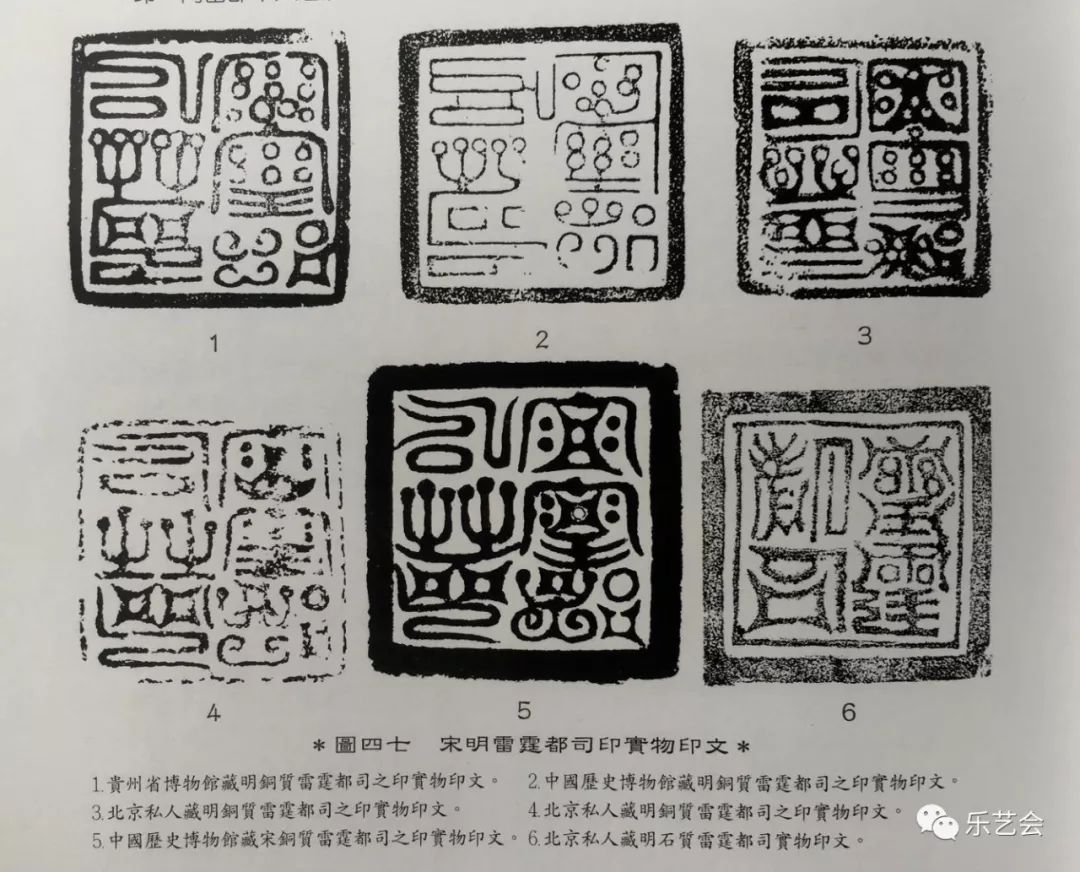 1
2
3
4
5
6
*圖四七 宋明雷霆都司印實物印文*
1.貴州省博物館藏明銅質雷霆都司之印實物印文。 2.中國歷史博物館藏明銅質雷霆都司之印實物印文。
3.北京私人藏明銅質雷霆都司之印實物印文。 4.北京私人藏明銅質雷霆都司之印實物印文。
5.中國歷史博物館藏宋銅質雷霆都司之印實物印文。 6.北京私人藏明石質雷霆都司實物印文。
乐艺会